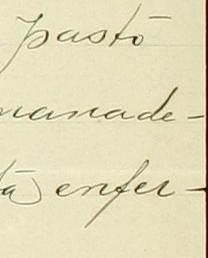 pastō
manade-
tā) enfer-